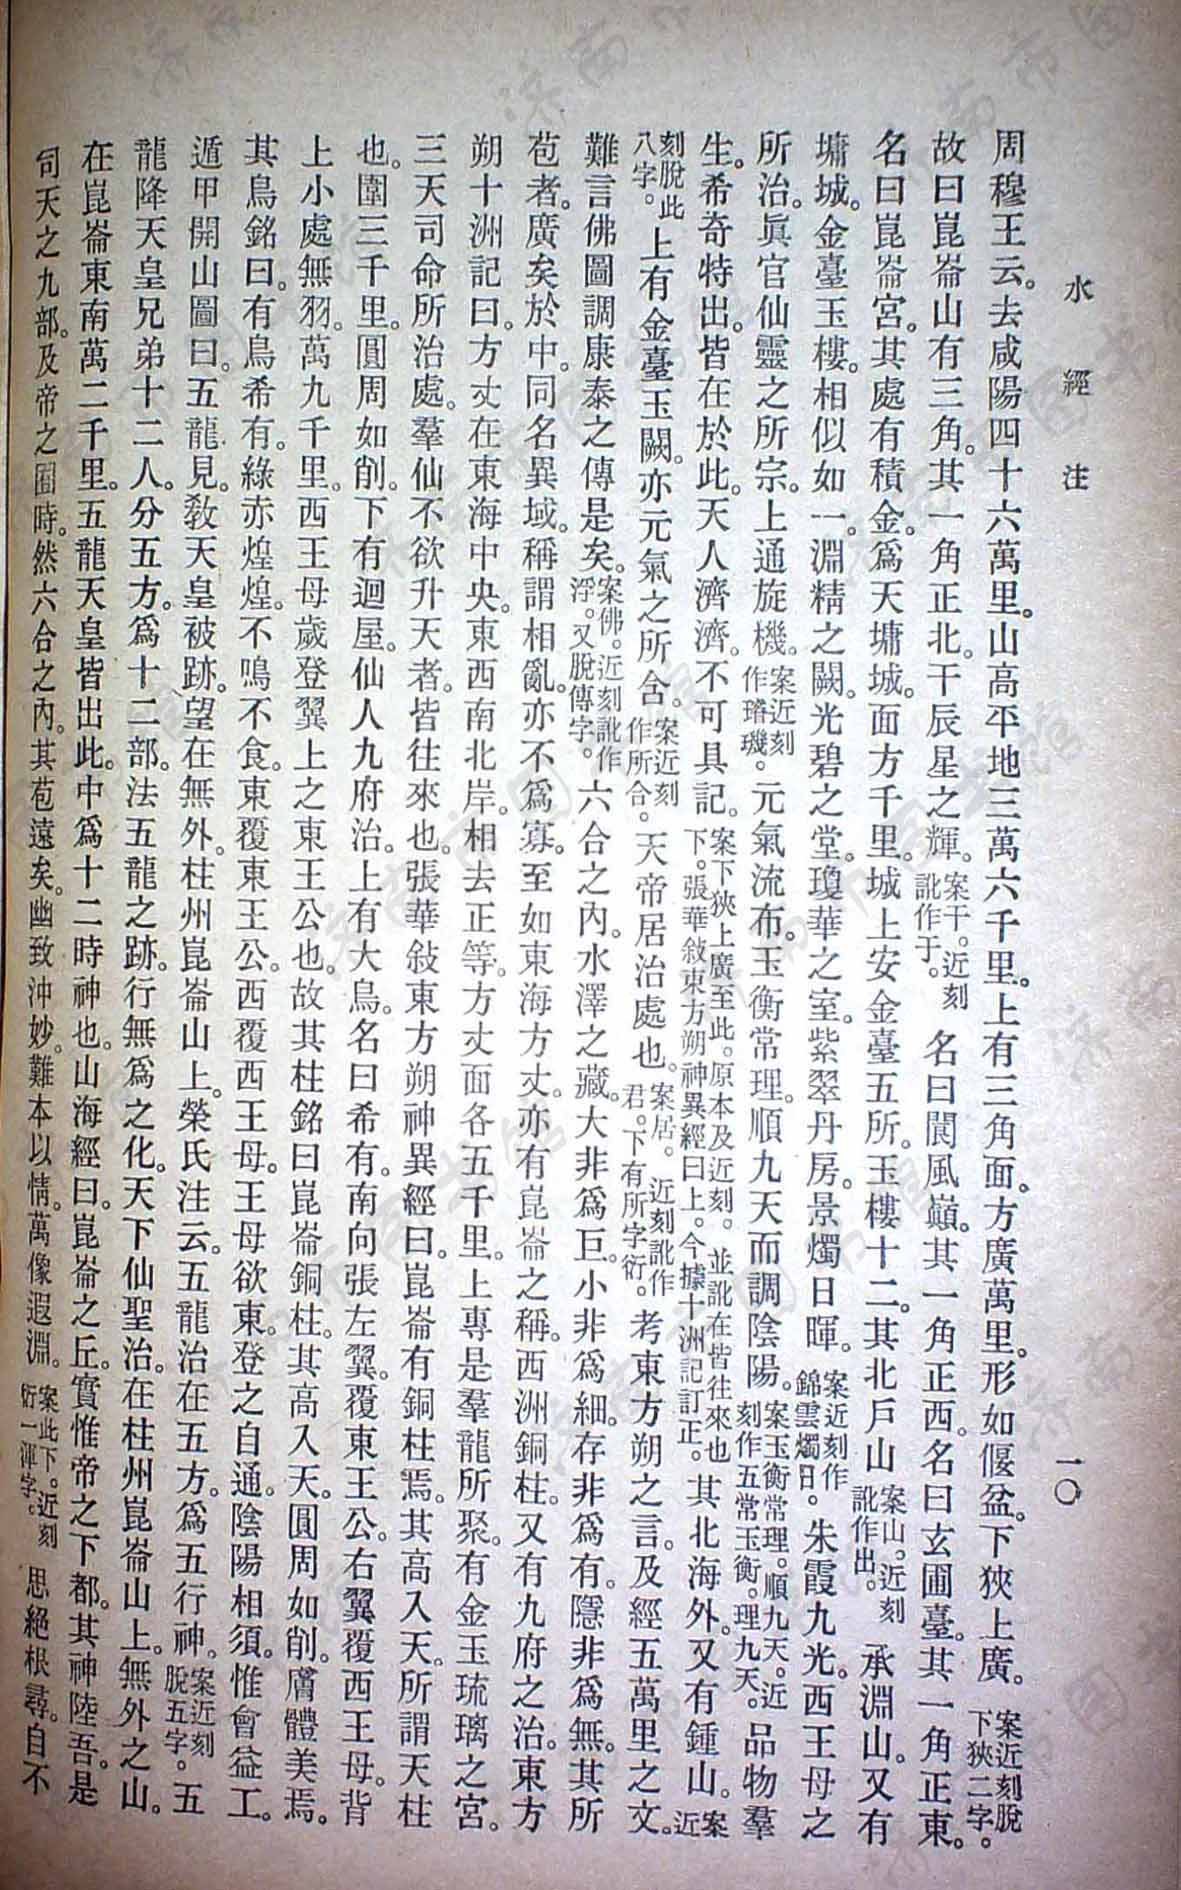 水經注
一〇
周穆王云。去咸陽四十六萬里。山高平地三萬六千里。上有三角面。方廣萬里。形如偃盆。下狹上廣。案近刻脫下狹二字。
故曰崑崙山有三角。其一角正北。干辰星之輝。案干。近刻訛作于。名曰閬風巔。其一角正西。名曰玄圃臺。其一角正東。
名曰崑崙宮。其處有積金。爲天墉城。面方千里。城上安金臺五所。玉樓十二。其北戶山案山。近刻訛作出。承淵山。又有
墉城。金臺玉樓。相似如一。淵精之闕。光碧之堂。瓊華之室。紫翠丹房。景燭日暉。案近刻作錦雲燭日。朱霞九光。西王母之
所治。眞官仙靈之所宗。上通旋機。案近刻作璿璣。元氣流布。玉衡常理。順九天而調陰陽。案玉衡常理。順九天。近刻作五常玉衡。理九天。品物羣
生。希奇特出。皆在於此。天人濟濟。不可具記。案下狹上廣至此。原本及近刻。並訛在皆往來也下。張華敍東方朔神異經曰上。今據十洲記訂正。其北海外。又有鍾山。案近
刻脫此八字。上有金臺玉闕。亦元氣之所含。案近刻作所合。天帝居治處也。案居。近刻訛作君。下有所字衍。考東方朔之言。及經五萬里之文。
難言佛圖調康泰之傳是矣。案佛。近刻訛作浮。又脫傳字。六合之內。水澤之藏。大非爲巨。小非爲細。存非爲有。隱非爲無。其所
苞者。廣矣於中。同名異域。稱謂相亂。亦不爲寡。至如東海方丈。亦有崑崙之稱。西洲銅柱。又有九府之治。東方
朔十洲記曰。方丈在東海中央。東西南北岸。相去正等。方丈面各五千里。上專是羣龍所聚。有金玉琉璃之宮。
三天司命所治處。羣仙不欲升天者。皆往來也。張華敍東方朔神異經曰。崑崙有銅柱焉。其高入天。所謂天柱
也。圍三千里。圓周如削。下有迴屋。仙人九府治。上有大鳥。名曰希有。南向張左翼。覆東王公。右翼覆西王母。背
上小處無羽。萬九千里。西王母歲登翼上之東王公也。故其柱銘曰崑崙銅柱。其高入天。圓周如削。膚體美焉。
其鳥銘曰。有鳥希有。綠赤煌煌。不鳴不食。東覆東王公。西覆西王母。王母欲東。登之自通。陰陽相須。惟會益工。
遁甲開山圖曰。五龍見。敎天皇被跡。望在無外。柱州崑崙山上。榮氏注云。五龍治在五方。爲五行神。案近刻脫五字。五
龍降天皇兄弟十二人。分五方。爲十二部。法五龍之跡。行無爲之化。天下仙聖治。在柱州崑崙山上。無外之山。
在崑崙東南萬二千里。五龍天皇皆出此。中爲十二時神也。山海經曰。崑崙之丘。實惟帝之下都。其神陸吾。是
司天之九部。及帝之囿時。然六合之內。其苞遠矣。幽致沖妙。難本以情。萬像遐淵。案此下。近刻衍一渾字。思絕根尋。自不